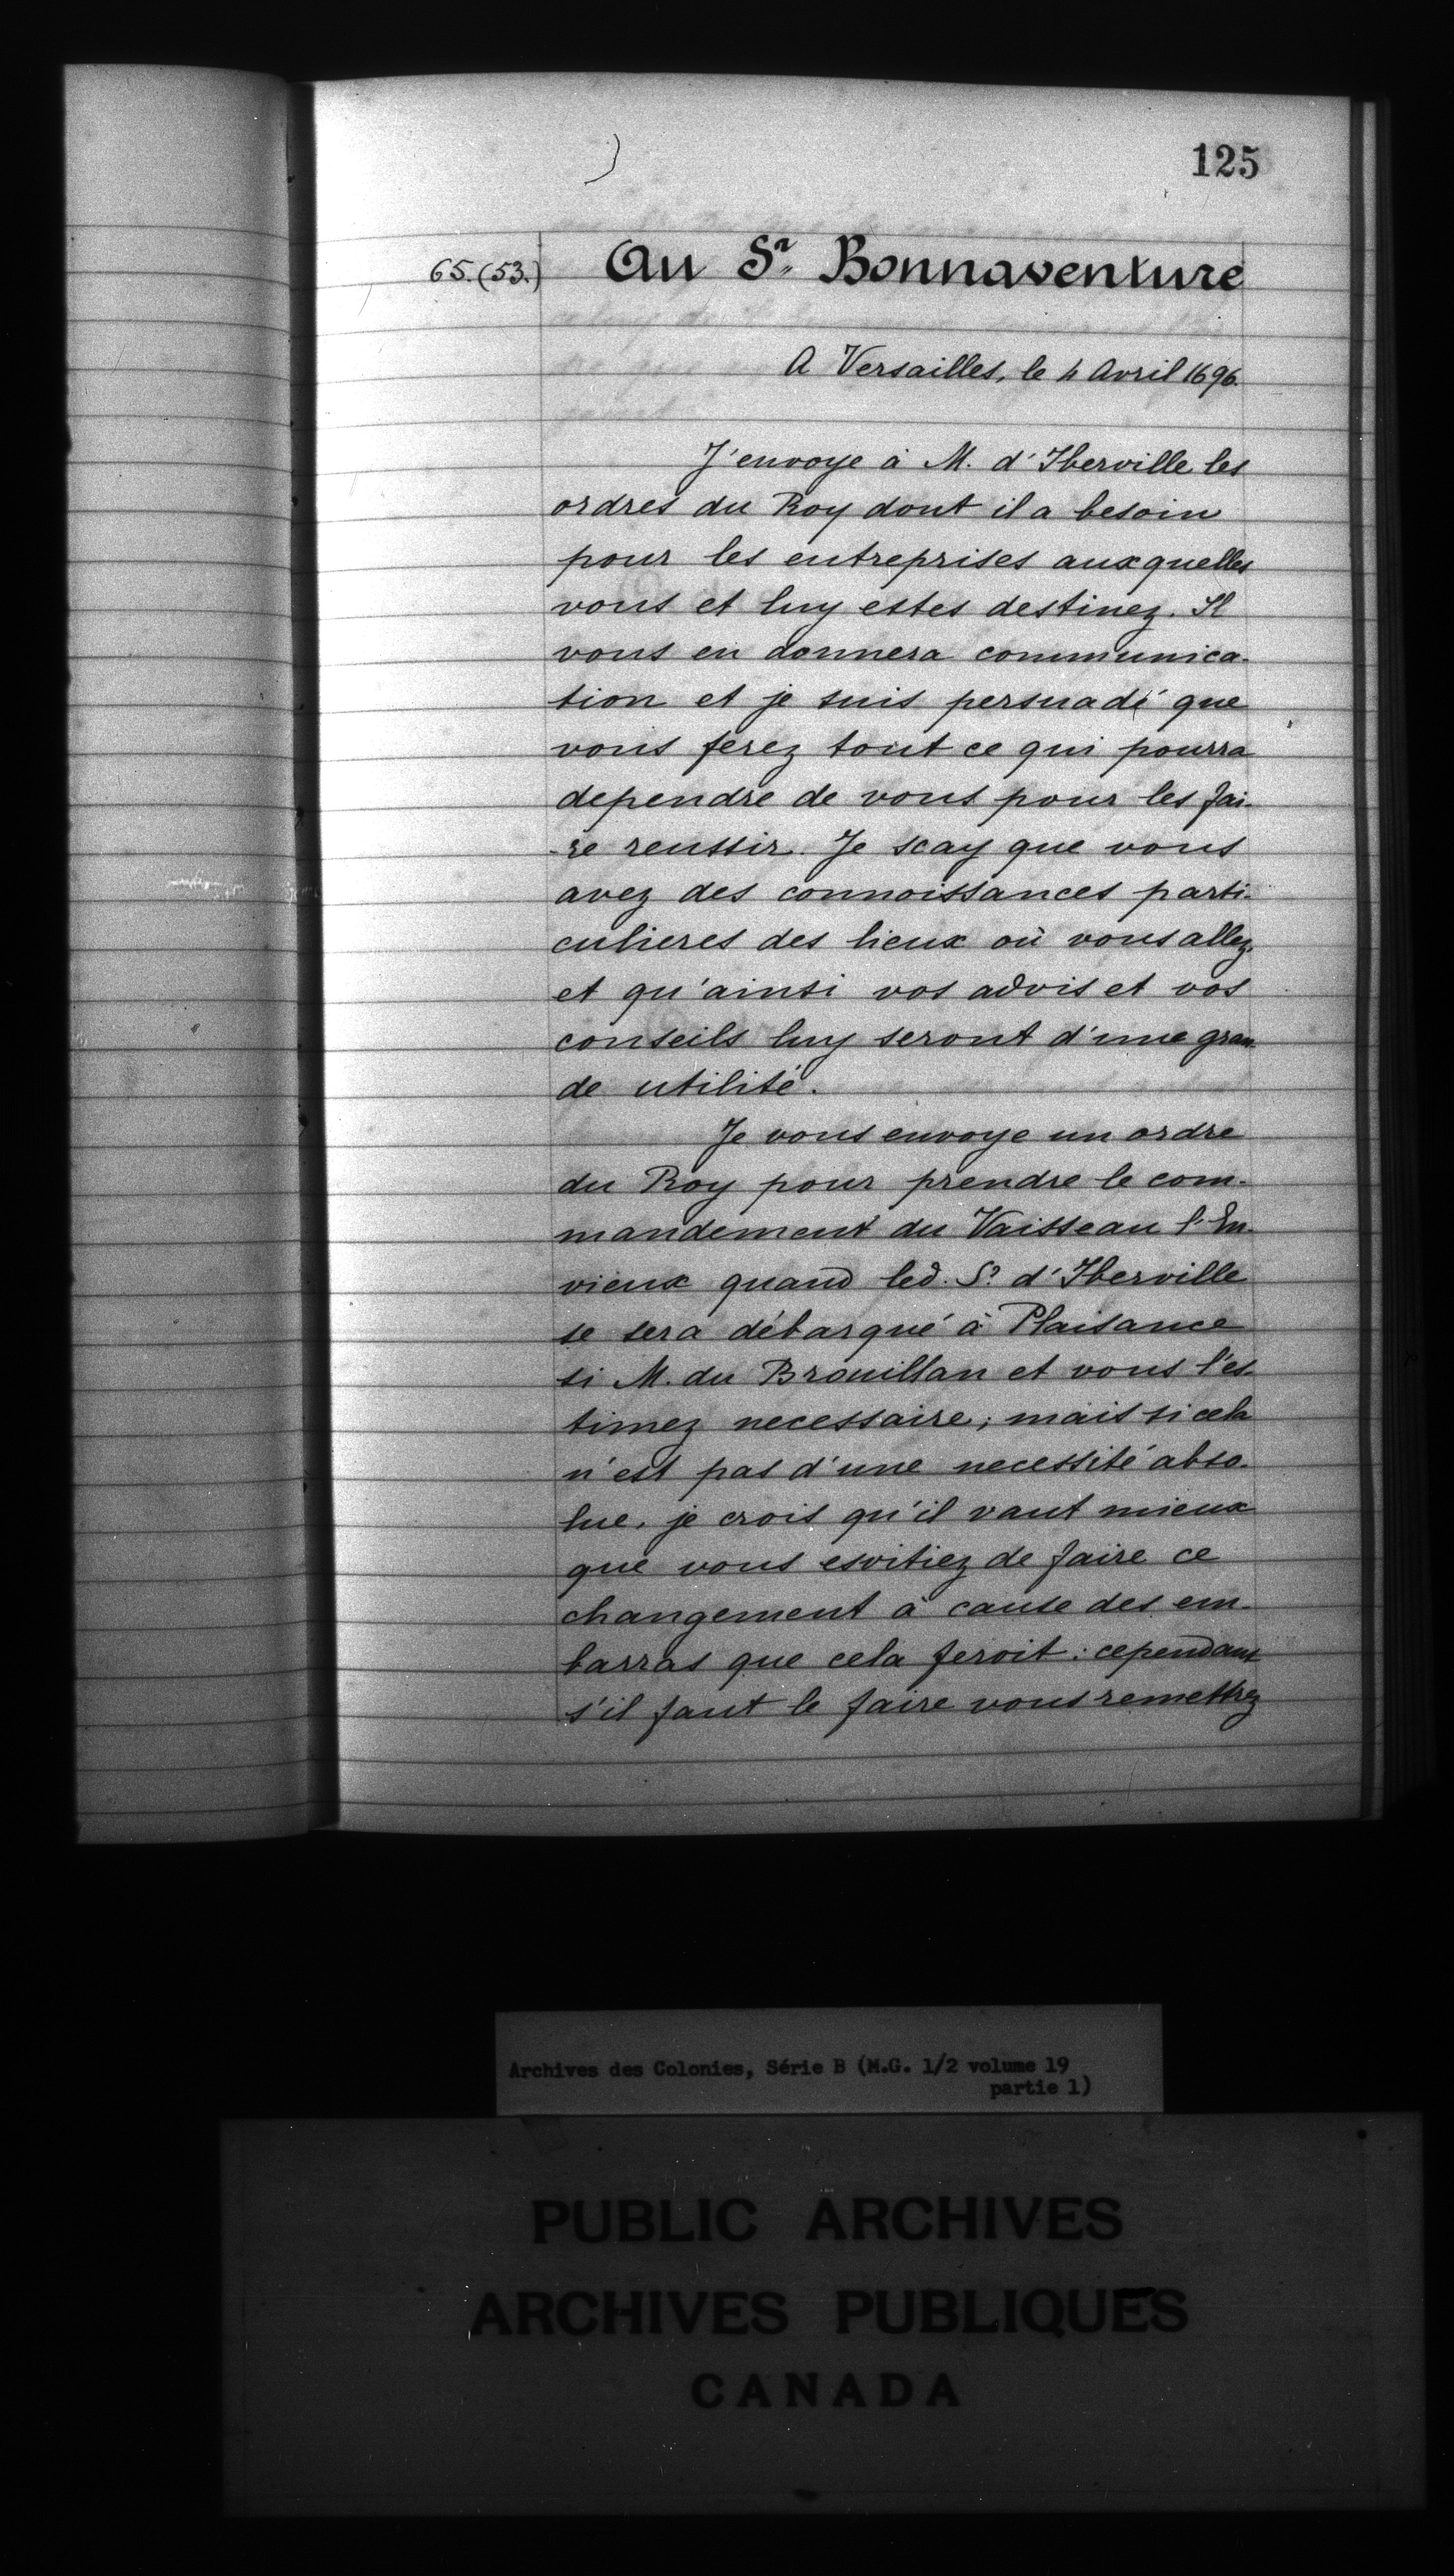 125
65.(53.) Au Sr. Bonnaventure
A Versailles, le 4 Avril 1696.
J'envoye à M. d'Iberville les
ordres du Roy dont il a besoin
pour les entreprises auxquelles
vous et luy estes destinez. Il
vous en donnera communica-
tion et je suis persuadé que
vous ferez tout ce qui pourra
dependre de vous pour les fai-
-re reussir. Je scay que vous
avez des connoissances parti-
culieres des lieux où vous allez,
et qu'ainsi vos advis et vos
conseils luy seront d'une gran-
de utilité.
Je vous envoye un ordre
du Roy pour prendre le com-
mandement du Vaisseau l'En-
vieux quand led. Sr. d'Iberville
se sera débarqué à Plaisance
si M. du Brouillan et vous l'es-
timez necessaire; mais si cela
n'est pas d'une necessité abso-
lue, je crois qu'il vaut mieux
que vous esvitiez de faire ce
changement à cause des em-
barras que cela feroit: cependant
s'il faut le faire vous remettrez
Archives des Colonies, Série B (M.G. 1/2 volume 19
partie 1)
PUBLIC ARCHIVES
ARCHIVES PUBLIQUES
CANADA